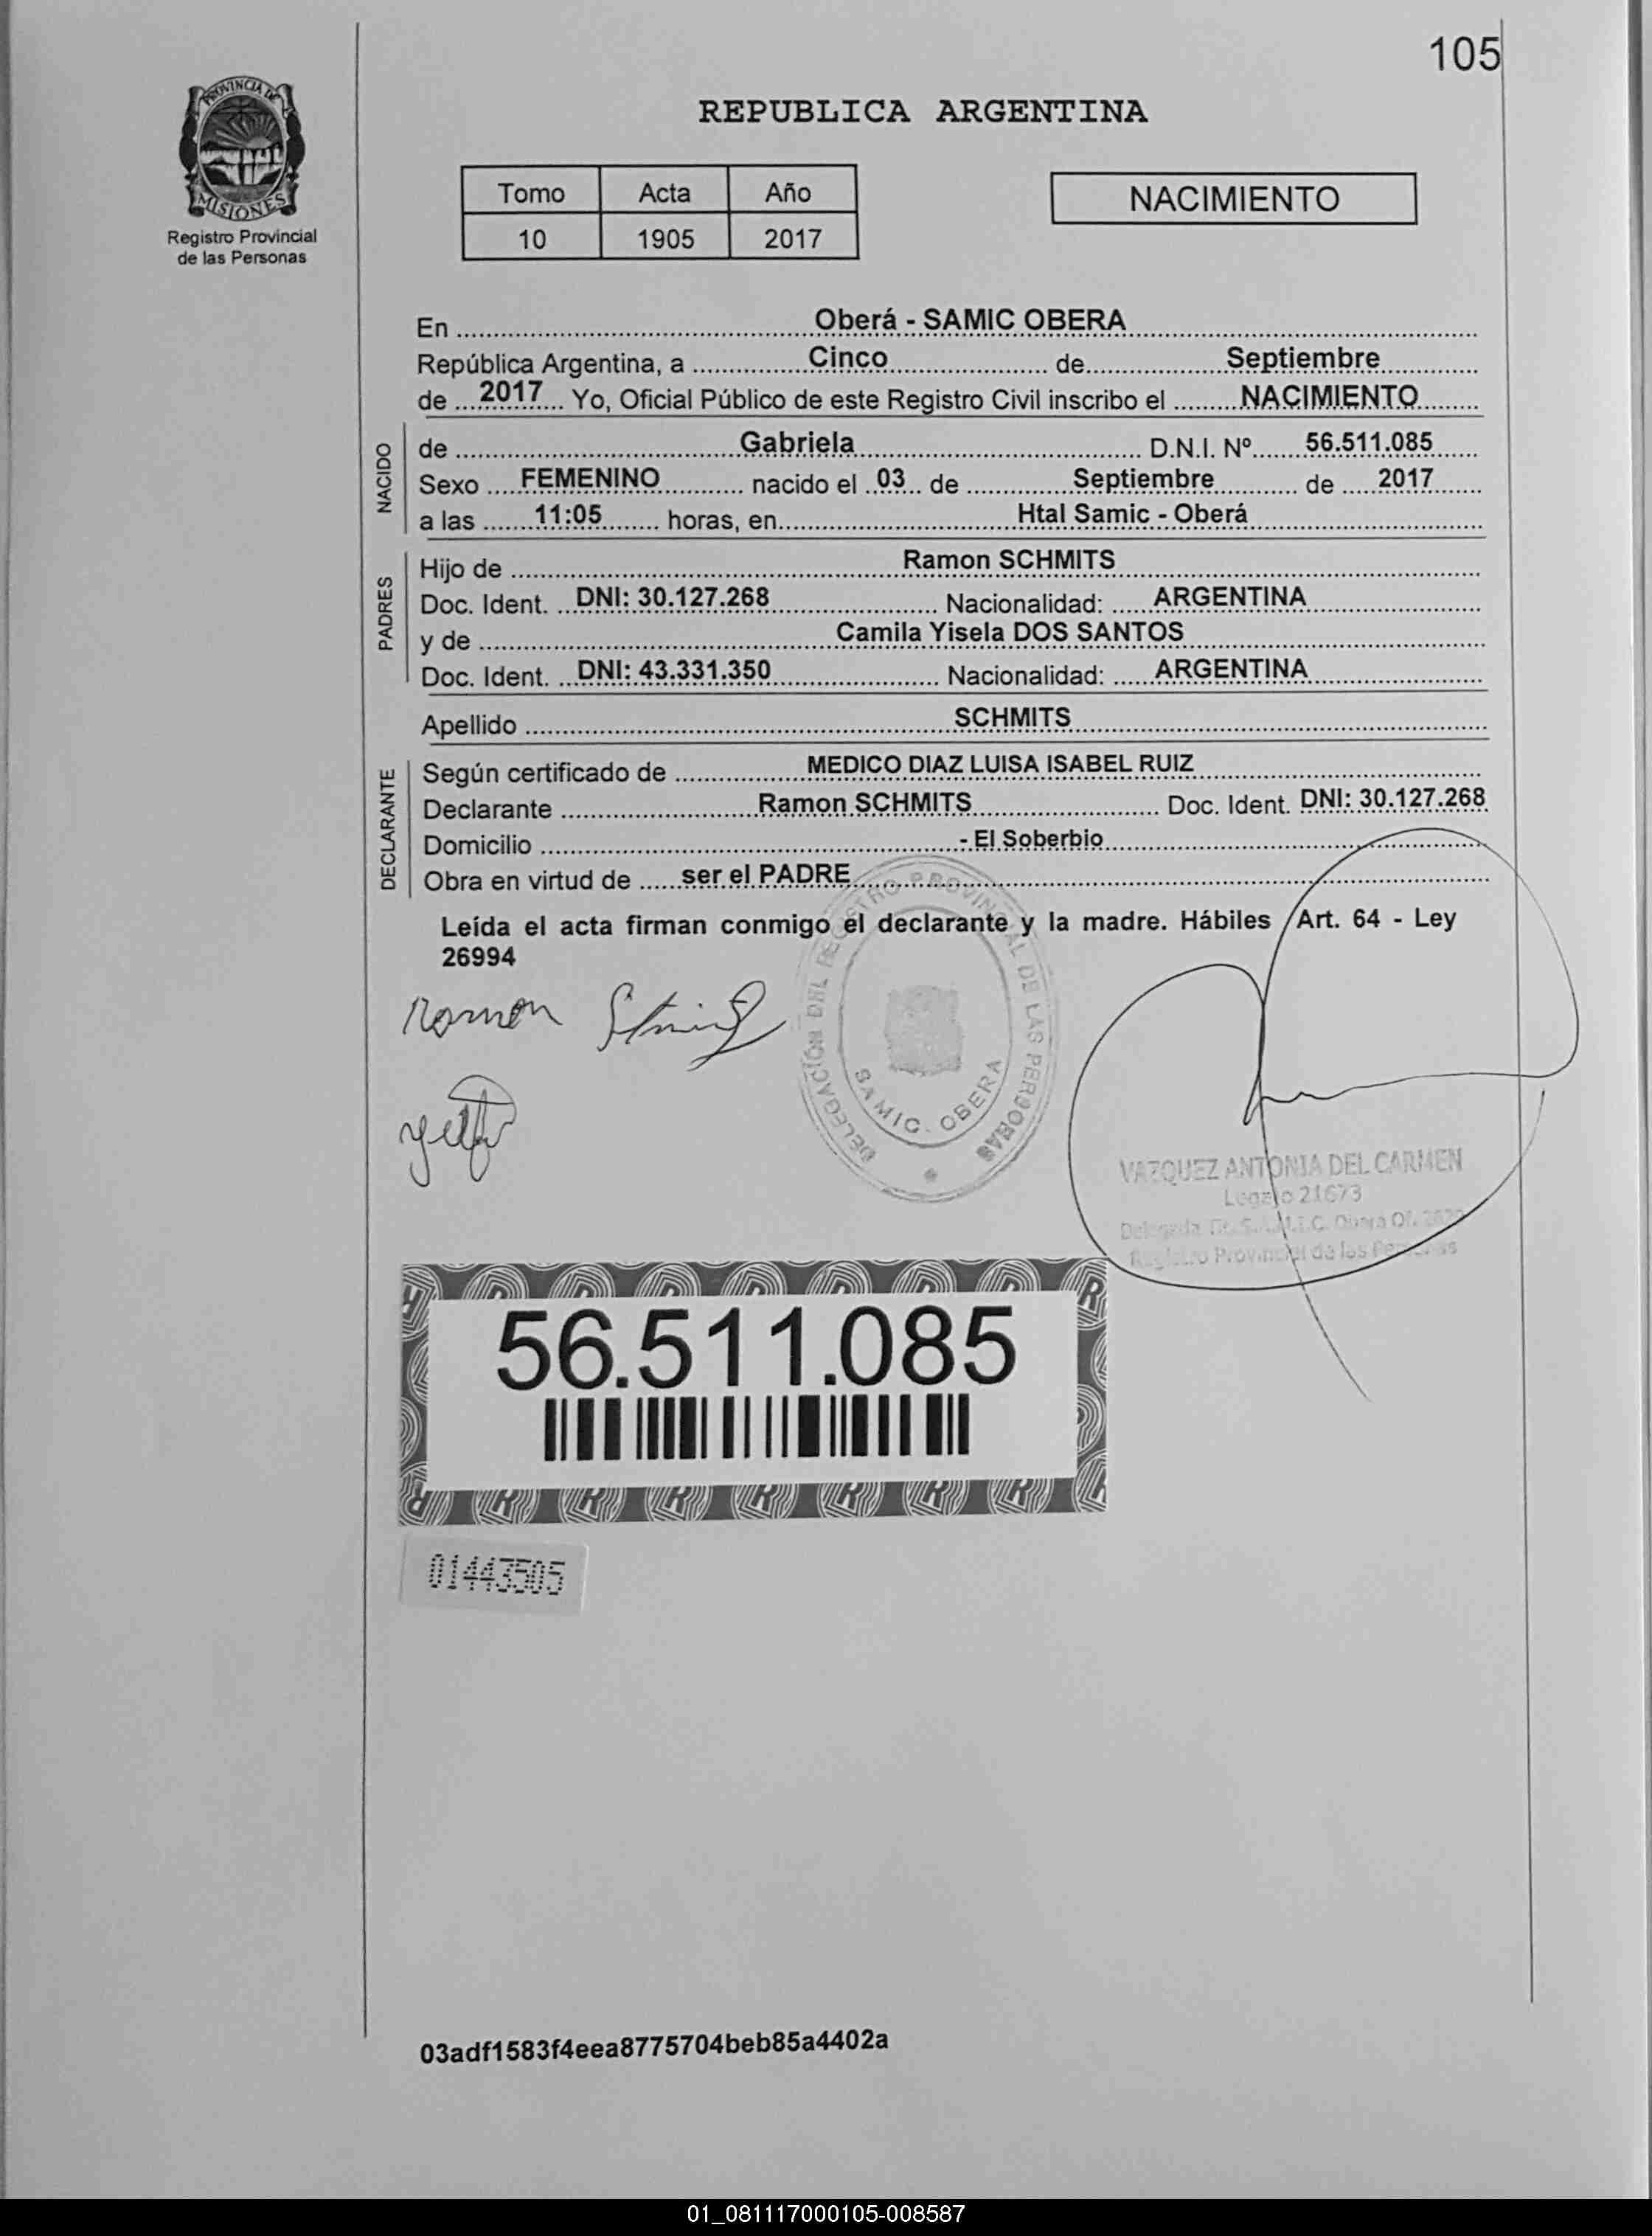 105
PROVINCIA DE
MISIONES
Registro Provincial
de las Personas
REPUBLICA ARGENTINA
Tomo Acta Año
10 1905 2017
NACIMIENTO
En Oberá - SAMIC OBERA
República Argentina, a Cinco de Septiembre
de 2017 Yo, Oficial Público de este Registro Civil inscribo el NACIMIENTO
NACIDO
de Gabriela D.N.I. Nº 56.511.085
Sexo FEMENINO nacido el 03 de Septiembre de 2017
a las 11:05 horas, en Htal Samic - Oberá
PADRES
Hijo de Ramon SCHMITS
Doc. Ident. DNI: 30.127.268 Nacionalidad: ARGENTINA
y de Camila Yisela DOS SANTOS
Doc. Ident. DNI: 43.331.350 Nacionalidad: ARGENTINA
Apellido SCHMITS
DECLARANTE
Según certificado de MEDICO DIAZ LUISA ISABEL RUIZ
Declarante Ramon SCHMITS Doc. Ident. DNI: 30.127.268
Domicilio - El Soberbio
Obra en virtud de ser el PADRE
Leída el acta firman conmigo el declarante y la madre. Hábiles Art. 64 - Ley
26994
Ramon
DELEGACIÓN DEL REGISTRO PROVINCIAL DE LAS PERSONAS
SAMIC. OBERA
VAZQUEZ ANTONIA DEL CARMEN
Legajo 21673
Delegada S.A.M.I.C. Obera Of.
Registro Provincial de las Personas
56.511.085
01443505
03adf1583f4eea8775704beb85a4402a
01_081117000105-008587